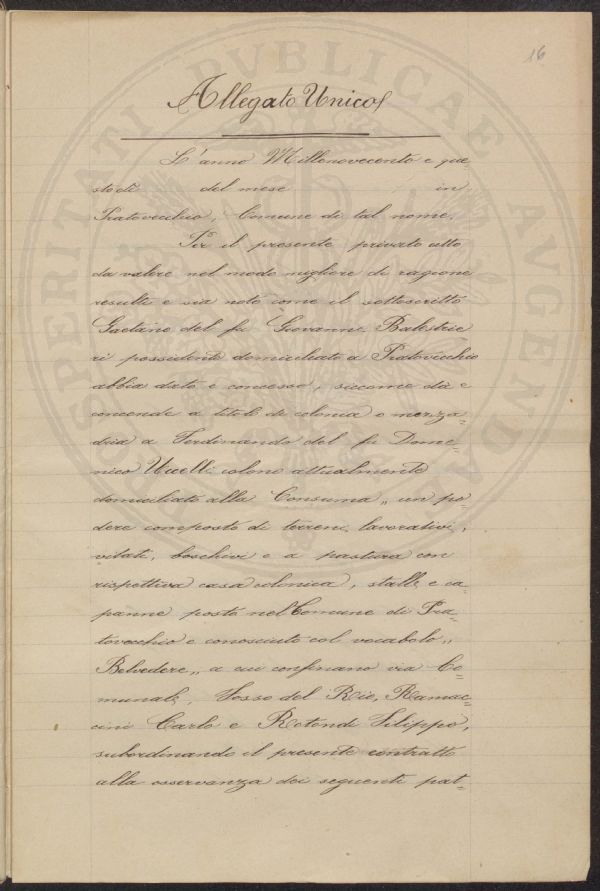 16
Allegato Unico
L'anno Millenovecento e que=
sto dì del mese in
Pratovecchio, Comune di tal nome.
Per il presente privato atto
da valere nel modo migliore di ragione
resulti e sia noto come il sottoscritto
Gaetano del fu Giovanni Balestrie
ri possidente domiciliato a Pratovecchio
abbia dato e concesso, siccome dà e
concende a titolo di colonia o mezza=
dria a Ferdinando del fu Dome=
nico Uccelli colono attualmente
domiciliato alla Consuma „ un po=
dere composto di terreni lavorativi,
vitati, boschivi e a pastura con
rispettiva casa colonica, stalle e ca=
panne posto nel Comune di Pra=
tovecchio e conosciuto col vocabolo „
Belvedere „ a cui confinano via Co=
munale, Fosso del Rio, Ramac=
cini Carlo e Rotondi Filippo,
subordinando il presente contratto
alla osservanza dei seguenti pat=
PROSPERITATI PVBLICAE AVGENDAE